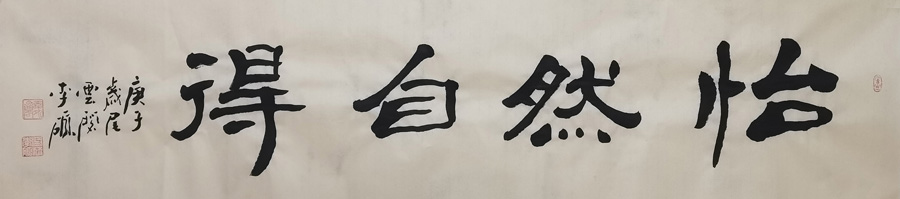 怡然自得
庚子
歲尾
雲閣
李